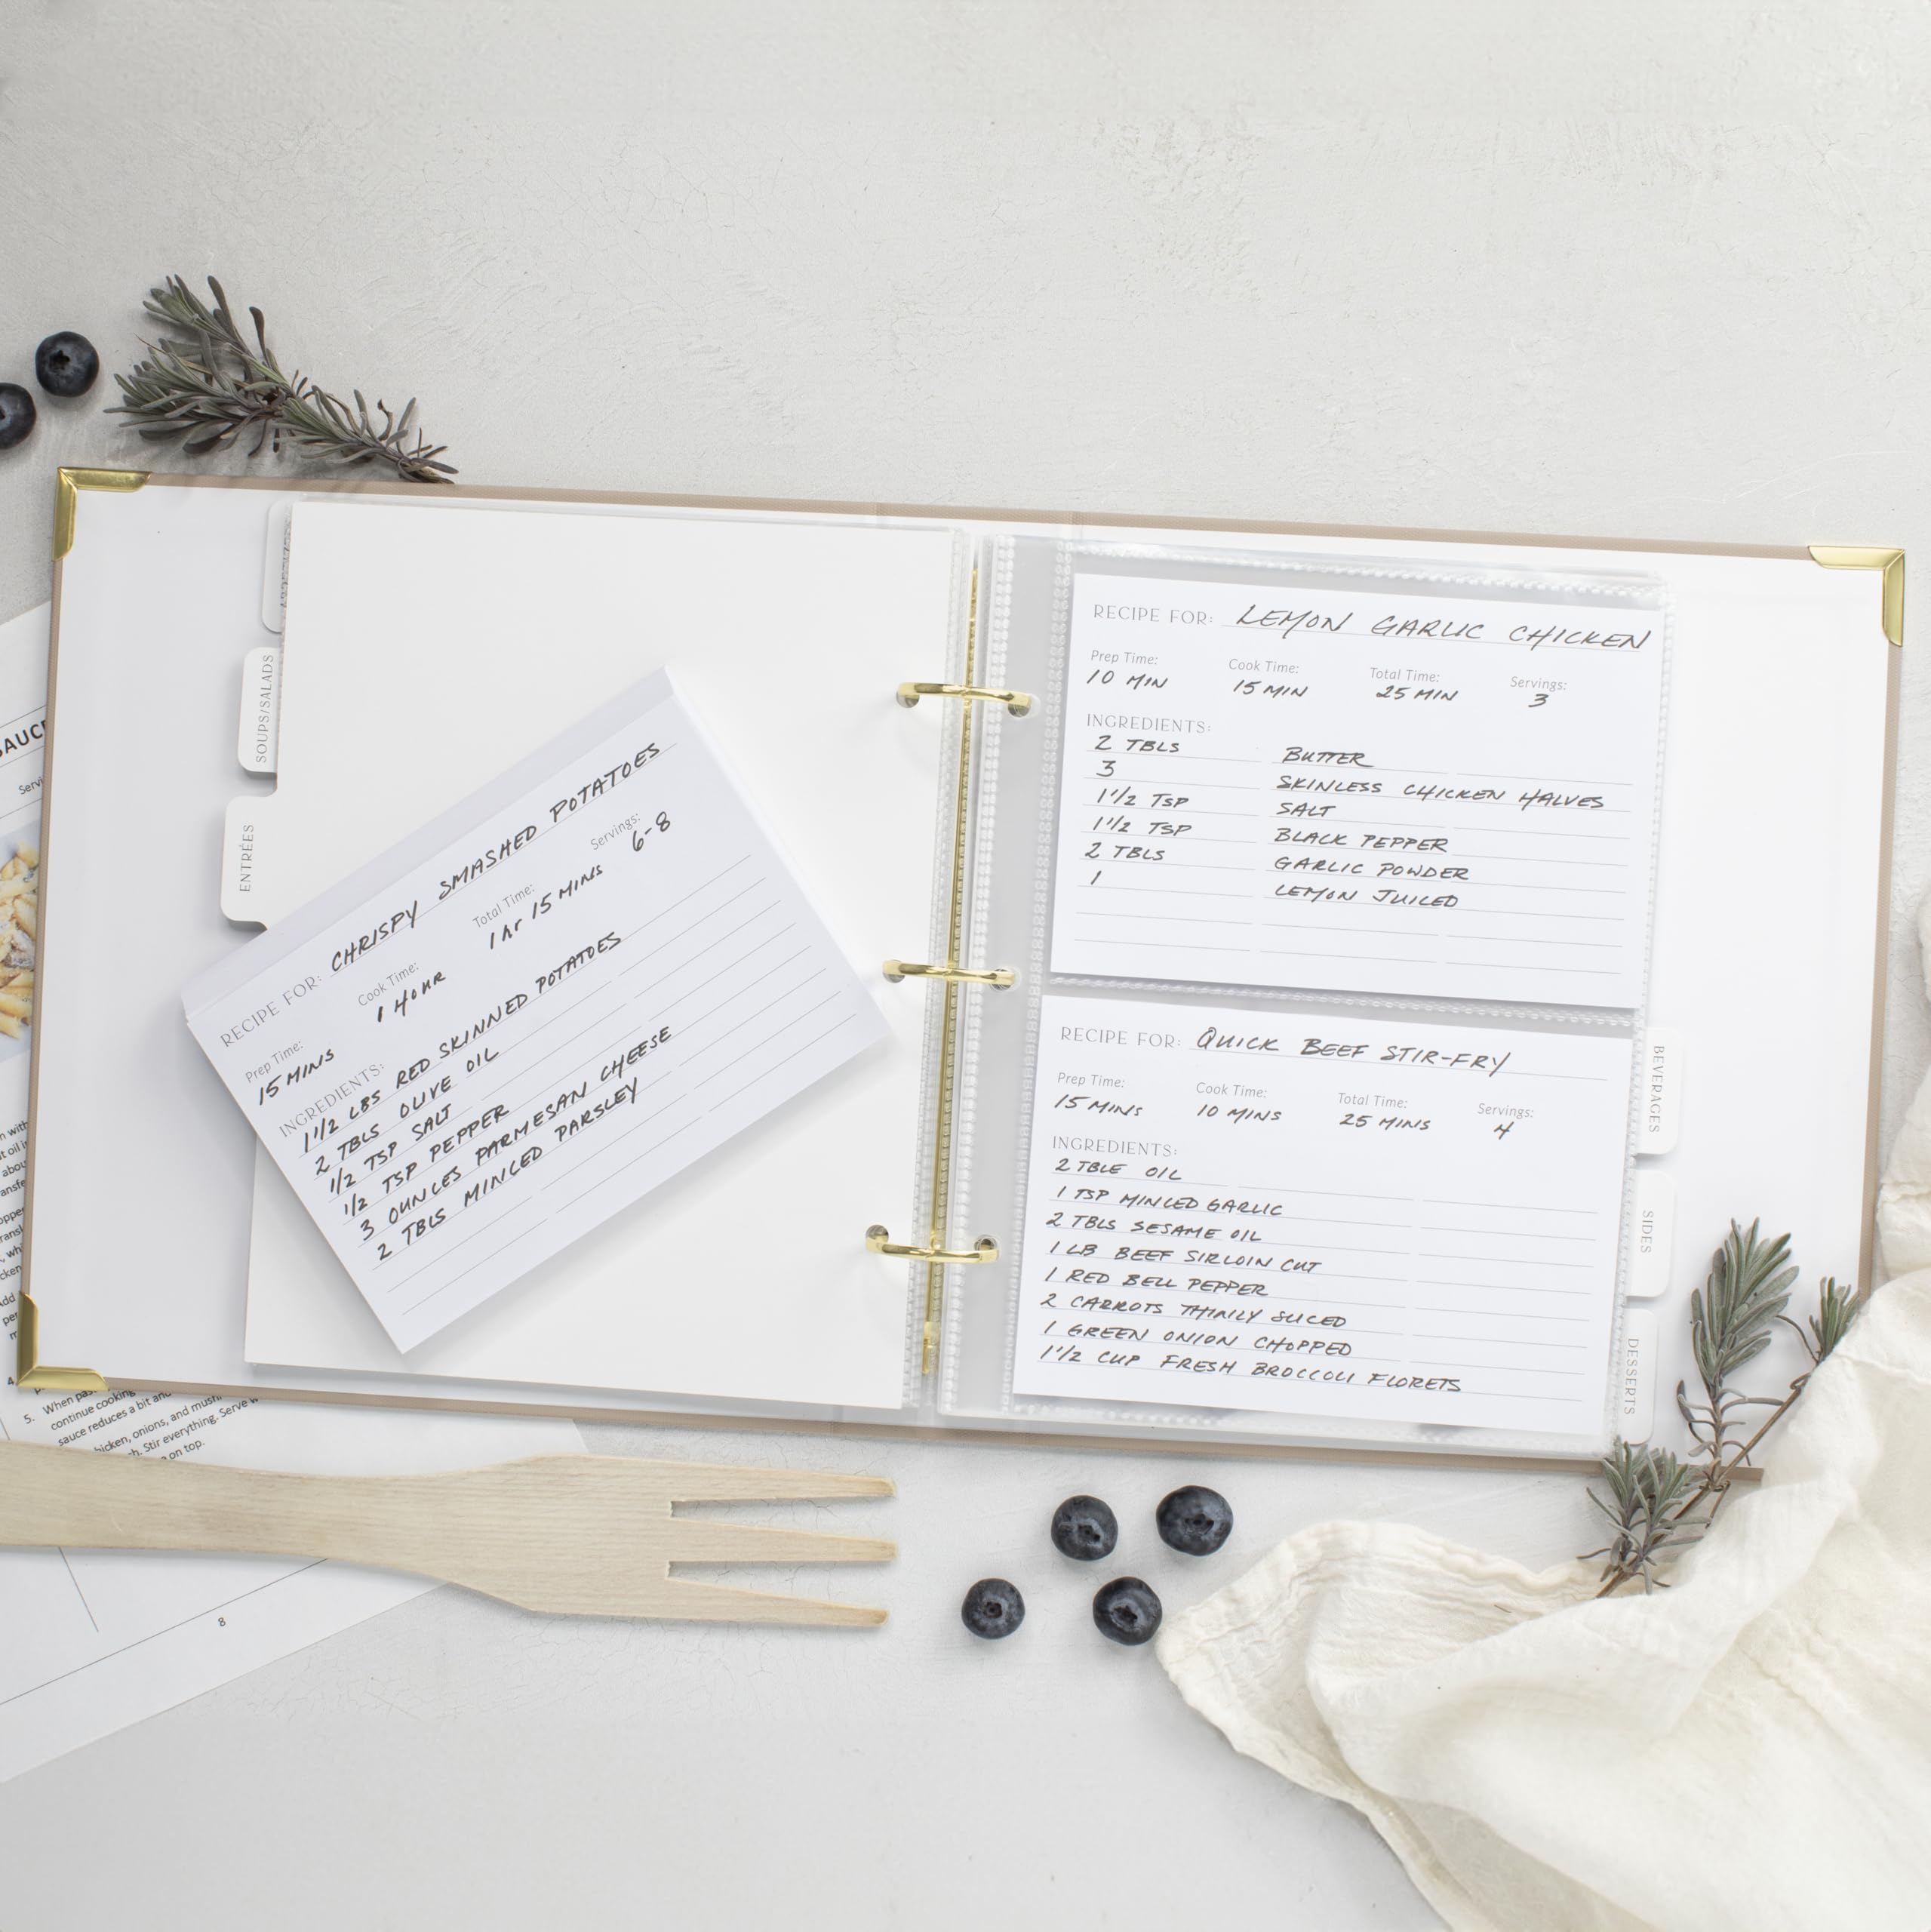 SOUPS/SALADS
ENTRÉES
RECIPE FOR: CHRISPY SMASHED POTATOES
Prep Time: Cook Time: Total Time: Servings:
15 MINS 1 HOUR 1 hr 15 MINS 6-8
INGREDIENTS:
1 1/2 LBS RED SKINNED POTATOES
2 TBLS OLIVE OIL
1/2 TSP SALT
1/2 TSP PEPPER
3 OUNCES PARMESAN CHEESE
2 TBLS MINCED PARSLEY
RECIPE FOR: LEMON GARLIC CHICKEN
Prep Time: Cook Time: Total Time: Servings:
10 MIN 15 MIN 25 MIN 3
INGREDIENTS:
2 TBLS BUTTER
3 SKINLESS CHICKEN HALVES
1 1/2 TSP SALT
1 1/2 TSP BLACK PEPPER
2 TBLS GARLIC POWDER
1 LEMON JUICED
RECIPE FOR: QUICK BEEF STIR-FRY
Prep Time: Cook Time: Total Time: Servings:
15 MINS 10 MINS 25 MINS 4
INGREDIENTS:
2 TBLE OIL
1 TSP MINCED GARLIC
2 TBLS SESAME OIL
1 LB BEEF SIRLOIN CUT
1 RED BELL PEPPER
2 CARROTS THINLY SLICED
1 GREEN ONION CHOPPED
1 1/2 CUP FRESH BROCCOLI FLORETS
BEVERAGES
SIDES
DESSERTS
5. When
continue cooking
sauce reduces a bit and
onions, and
Stir everything. Serve
on top.
8